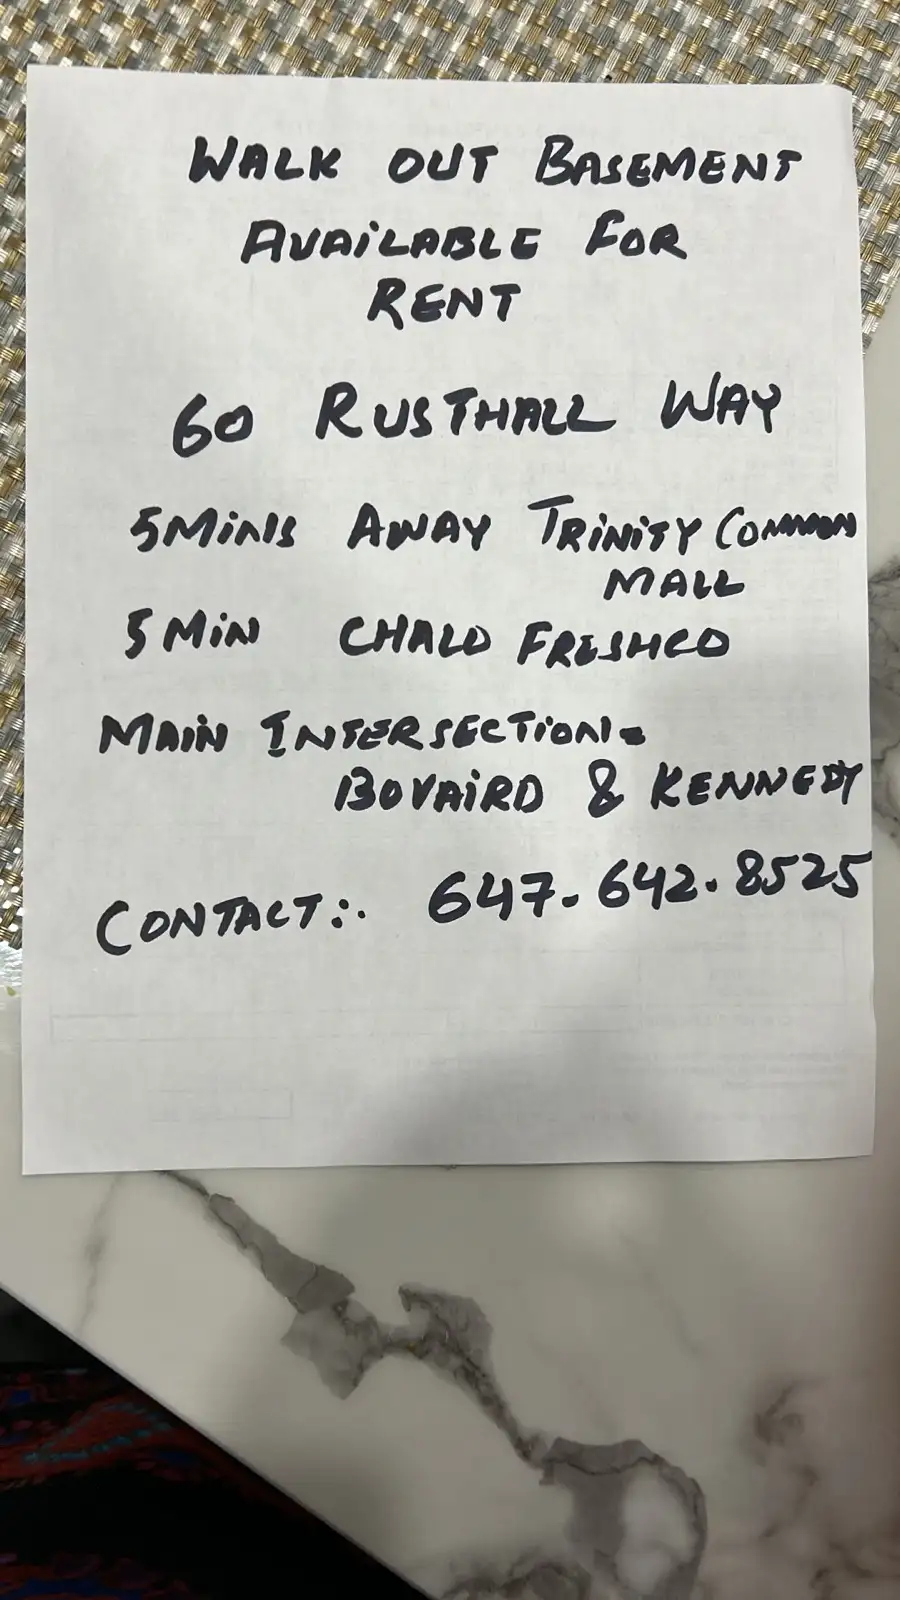 WALK OUT BASEMENT
AVAiLABLE FOR
RENT
60 RUSTHALL WAY
5MiNS AWAY TRiNiTY COMMON
MALL
5 MiN CHALO FRESHCO
MAiN INTERSECTiON:
BOVAiRD & KENNEDY
CONTACT:. 647.642.8525